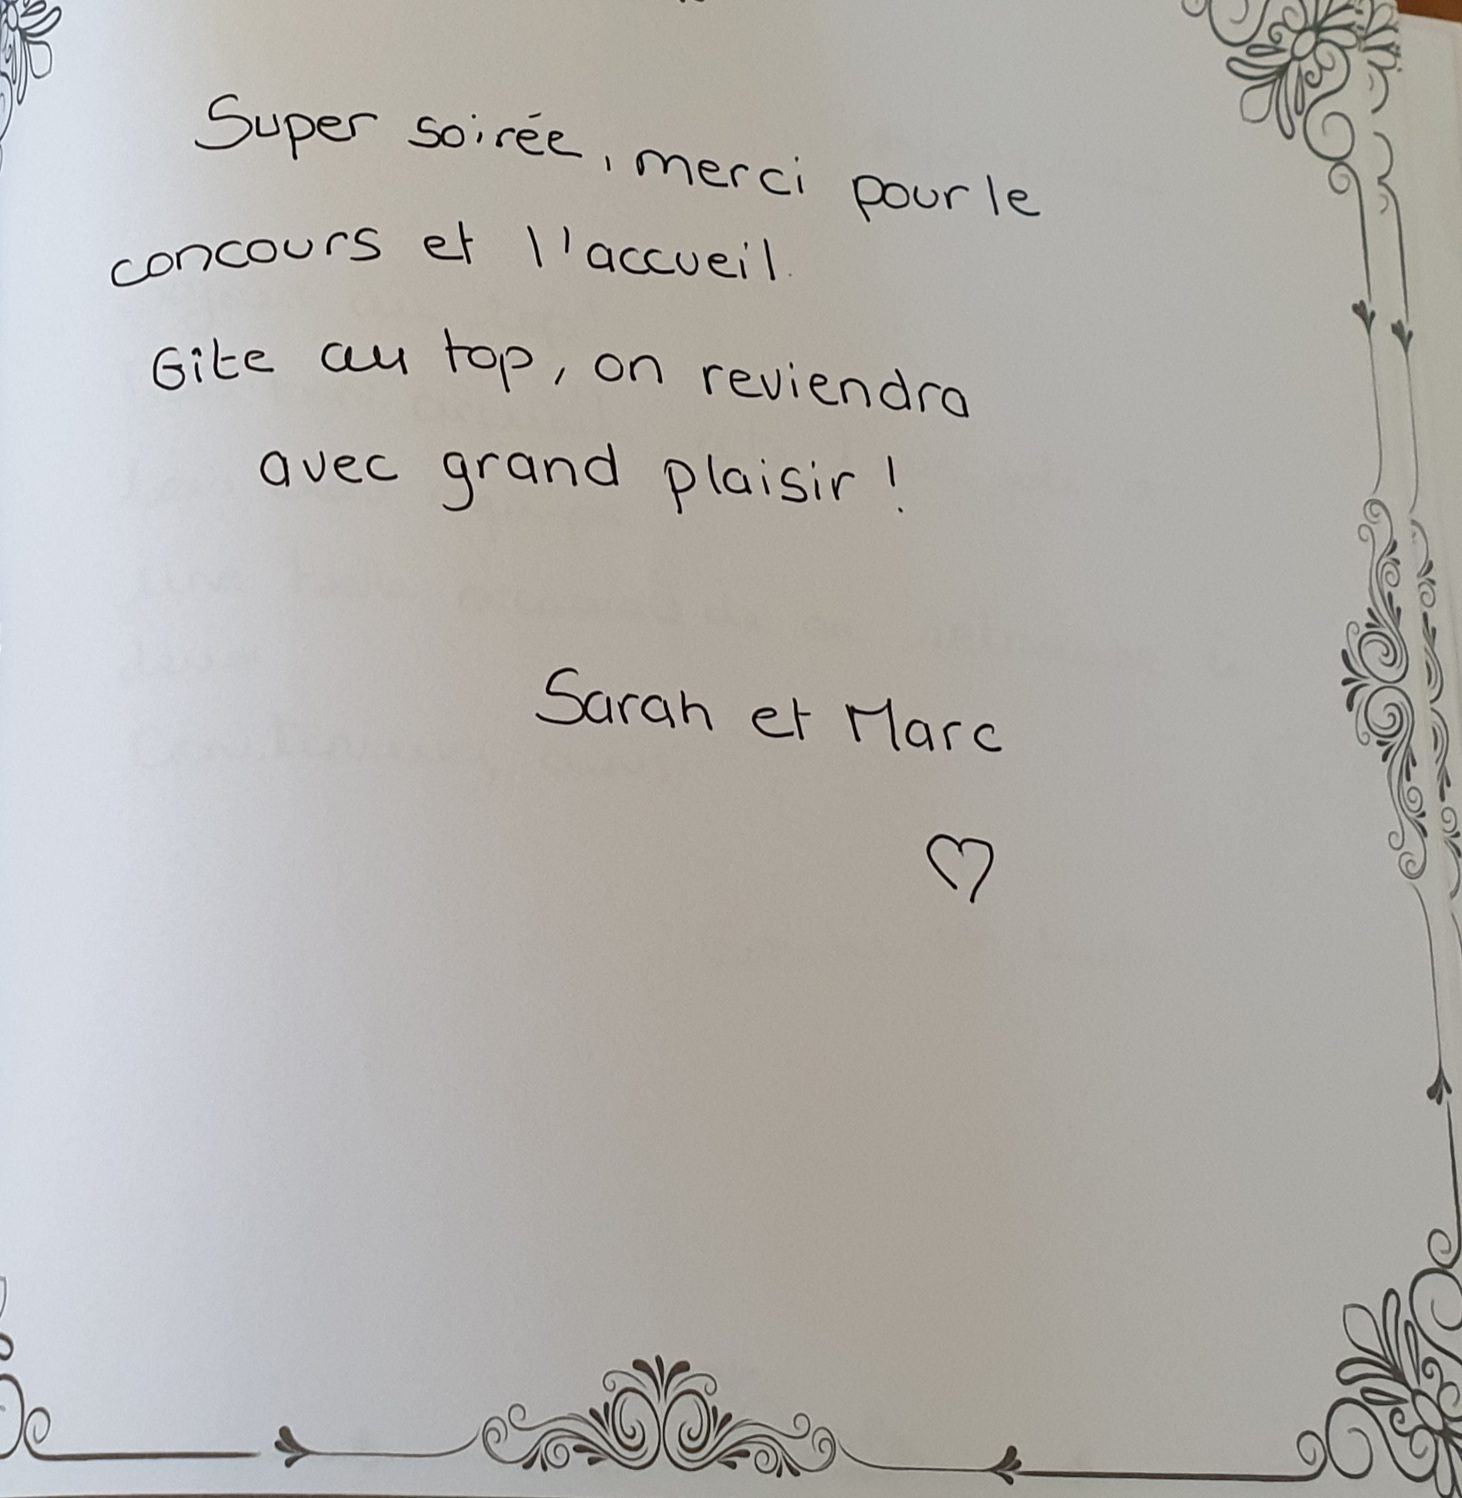 Super soirée, merci pour le
concours et l'accueil.
Gîte au top, on reviendra
avec grand plaisir !
Sarah et Marc